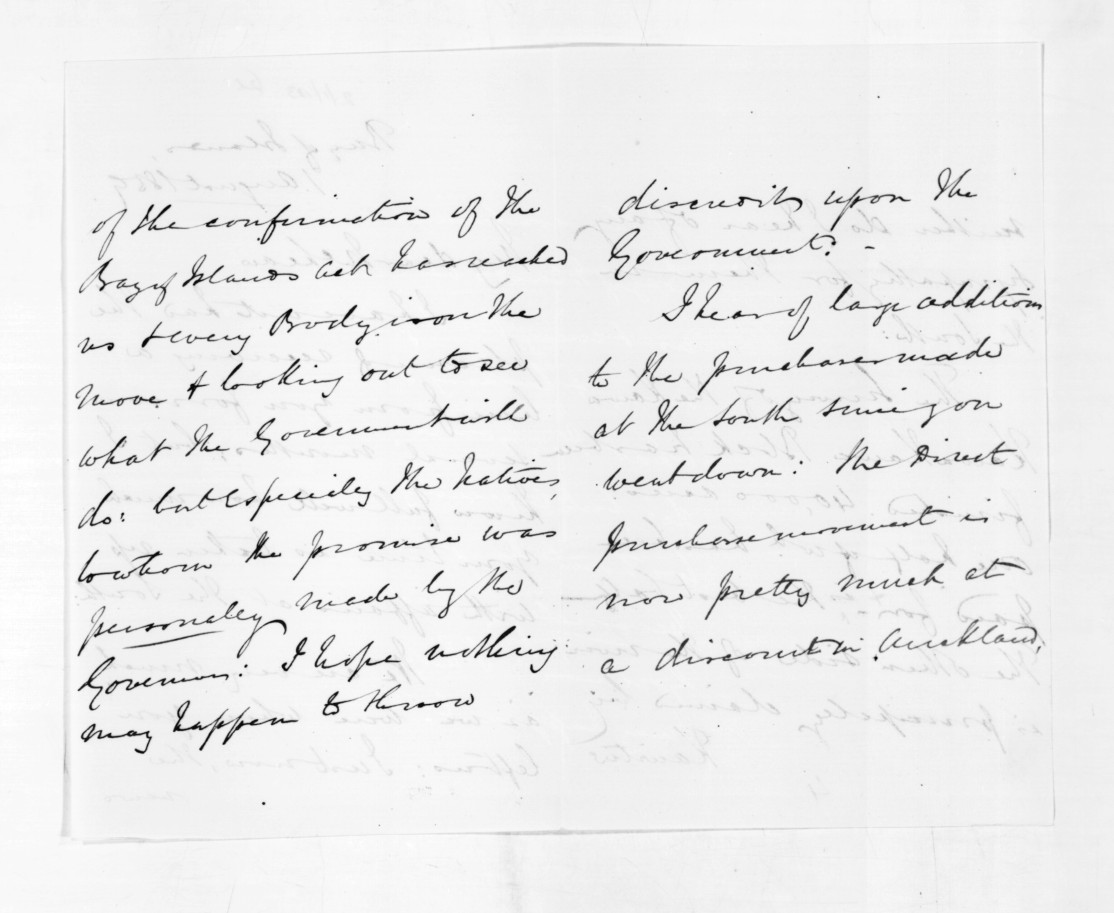 of the confirmation of the
Bay of Islands Act has reached
us & every Body is on the
move & looking out to see
what the Government will
do: but Especially the Natives,
to whom the promise was
personaley made by the
Governor: I hope nothing
may happen to throw
discredit upon the
Government. -
I hear of large additions
to the purchases made
at the South since you
went down: The Direct
purchase movement is
now pretty much at
a discount in Auckland.